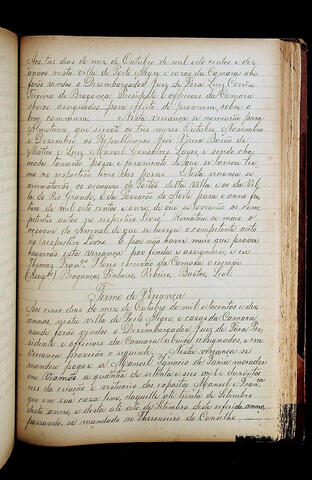 Aos tres dias do mez de Outubro de mil oito centos e dez
annos nesta villa de Porto Alegre e cazas da Camara ahi
forão vindos o Dezembargador Juiz de Fora Luiz Corrêa
Teixeira de Bragança, Presidente e officiaes da Camara
abaixo assignados para effeito de proverem sobre o
bem commum. Nesta vereança se nomearão para
Almotacés que servão os tres mezes Outubro, Novembro
e Dezembro, os Republicanos José Vieira Barão de
Mattos e Luiz Manoel Gonsalves Lages, e sendo cha-
mados tomarão posse e juramento de que se lavrou ter-
mo no respectivo livro das posses. Nesta vereança se
arrematarão os açougues do Portão desta Villa e os da Vil-
la do Rio Grande, e da Povoação do Norte para o anno fu-
turo de mil oito centos e onze, de que se lavrarão os com-
petentes autos no respectivo Livro. Rematou-se mais o
açougue do Arsenal de que se lavrou o competente auto
no respectivo Livro. E por não haver mais que prover
houverão esta vereança por finda e assignarão, e eu
Thomaz Franco. Flores Escrivão da Camara o escrevi
Bragança, Pinheiro, Ribeiro, Bastos, Leal.
Termo de Vereança
Aos cinco dias do mez de Outubro de mil oitocentos e dez
annos, nesta Villa de Porto Alegre, e cazas da Camara
onde forão vindos o Dezembargador Juiz de Fora Pre-
sidente e officiaes da Camara abaixo assignados, e em
Vereança proverão o seguinte. Nesta vereança se
mandou pagar a Manoel Ignacio de Faria morador
em Viamão a quantia de setenta e seis mil e duzentos
reis da criação e vestiario dos expostos Manoel e Franca.
que em sua caza tem, daquelle até trinta de Setembro
deste anno, e desta até oito de Setembro deste referido anno,
passando se mandado ao Thezoureiro do Conselho